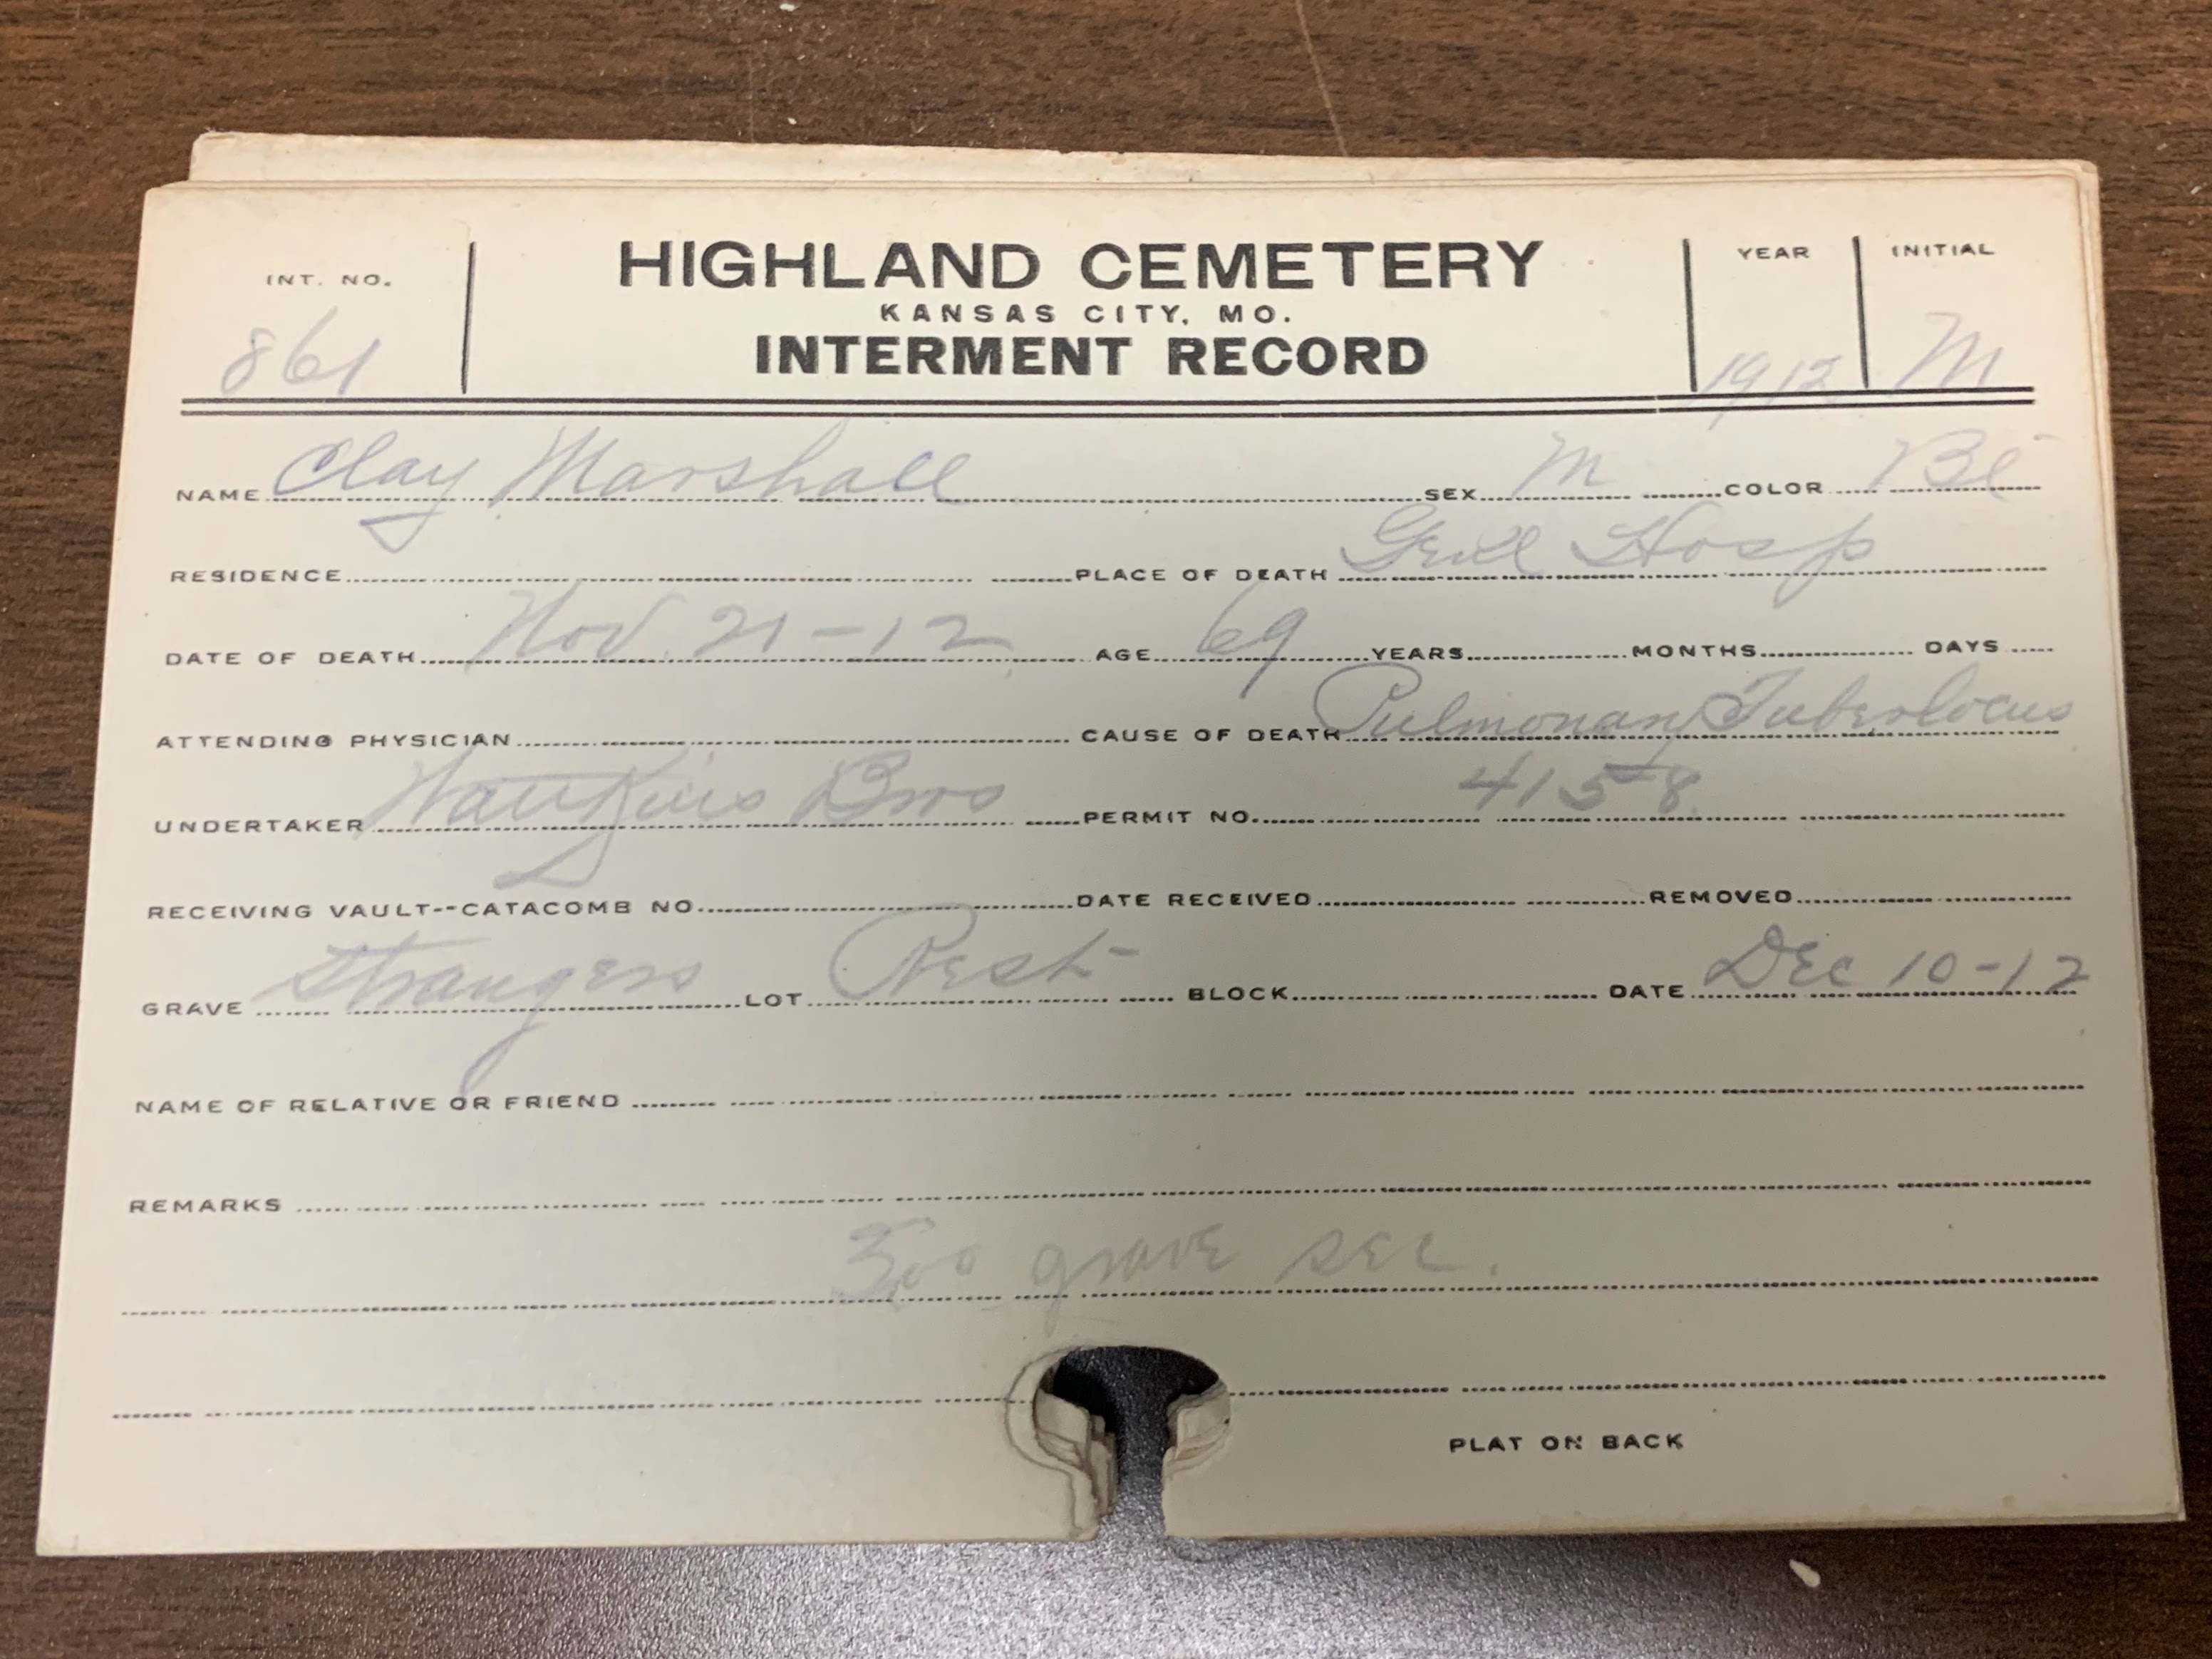 INT. NO. HIGHLAND CEMETERY YEAR INITIAL
KANSAS CITY, MO.
861 INTERMENT RECORD 1912 M
NAME Clay Marshall SEX M COLOR Bl
RESIDENCE PLACE OF DEATH Genl Hosp
DATE OF DEATH Nov. 21-12 AGE 69 YEARS MONTHS DAYS
ATTENDING PHYSICIAN CAUSE OF DEATH Pulmonary Tuberlocus
UNDERTAKER Watkins Bros PERMIT NO. 4158
RECEIVING VAULT--CATACOMB NO. DATE RECEIVED REMOVED
GRAVE Strangers LOT Rest BLOCK DATE Dec 10-12
NAME OF RELATIVE OR FRIEND
REMARKS
grave sec.
PLAT ON BACK